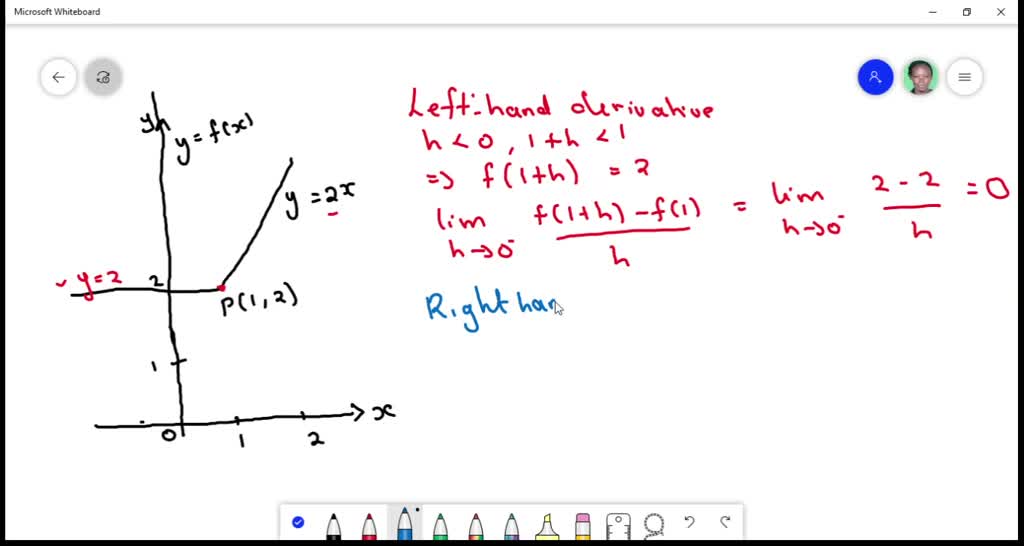 Microsoft Whiteboard
y
y = f(x)
y = 2x
y = 2
2
P(1, 2)
1
0
1
2
x
Left-hand derivative
h < 0, 1 + h < 1
=> f(1+h) = 2
lim h→0⁻ f(1+h) - f(1) / h = lim h→0⁻ 2 - 2 / h = 0
Right han